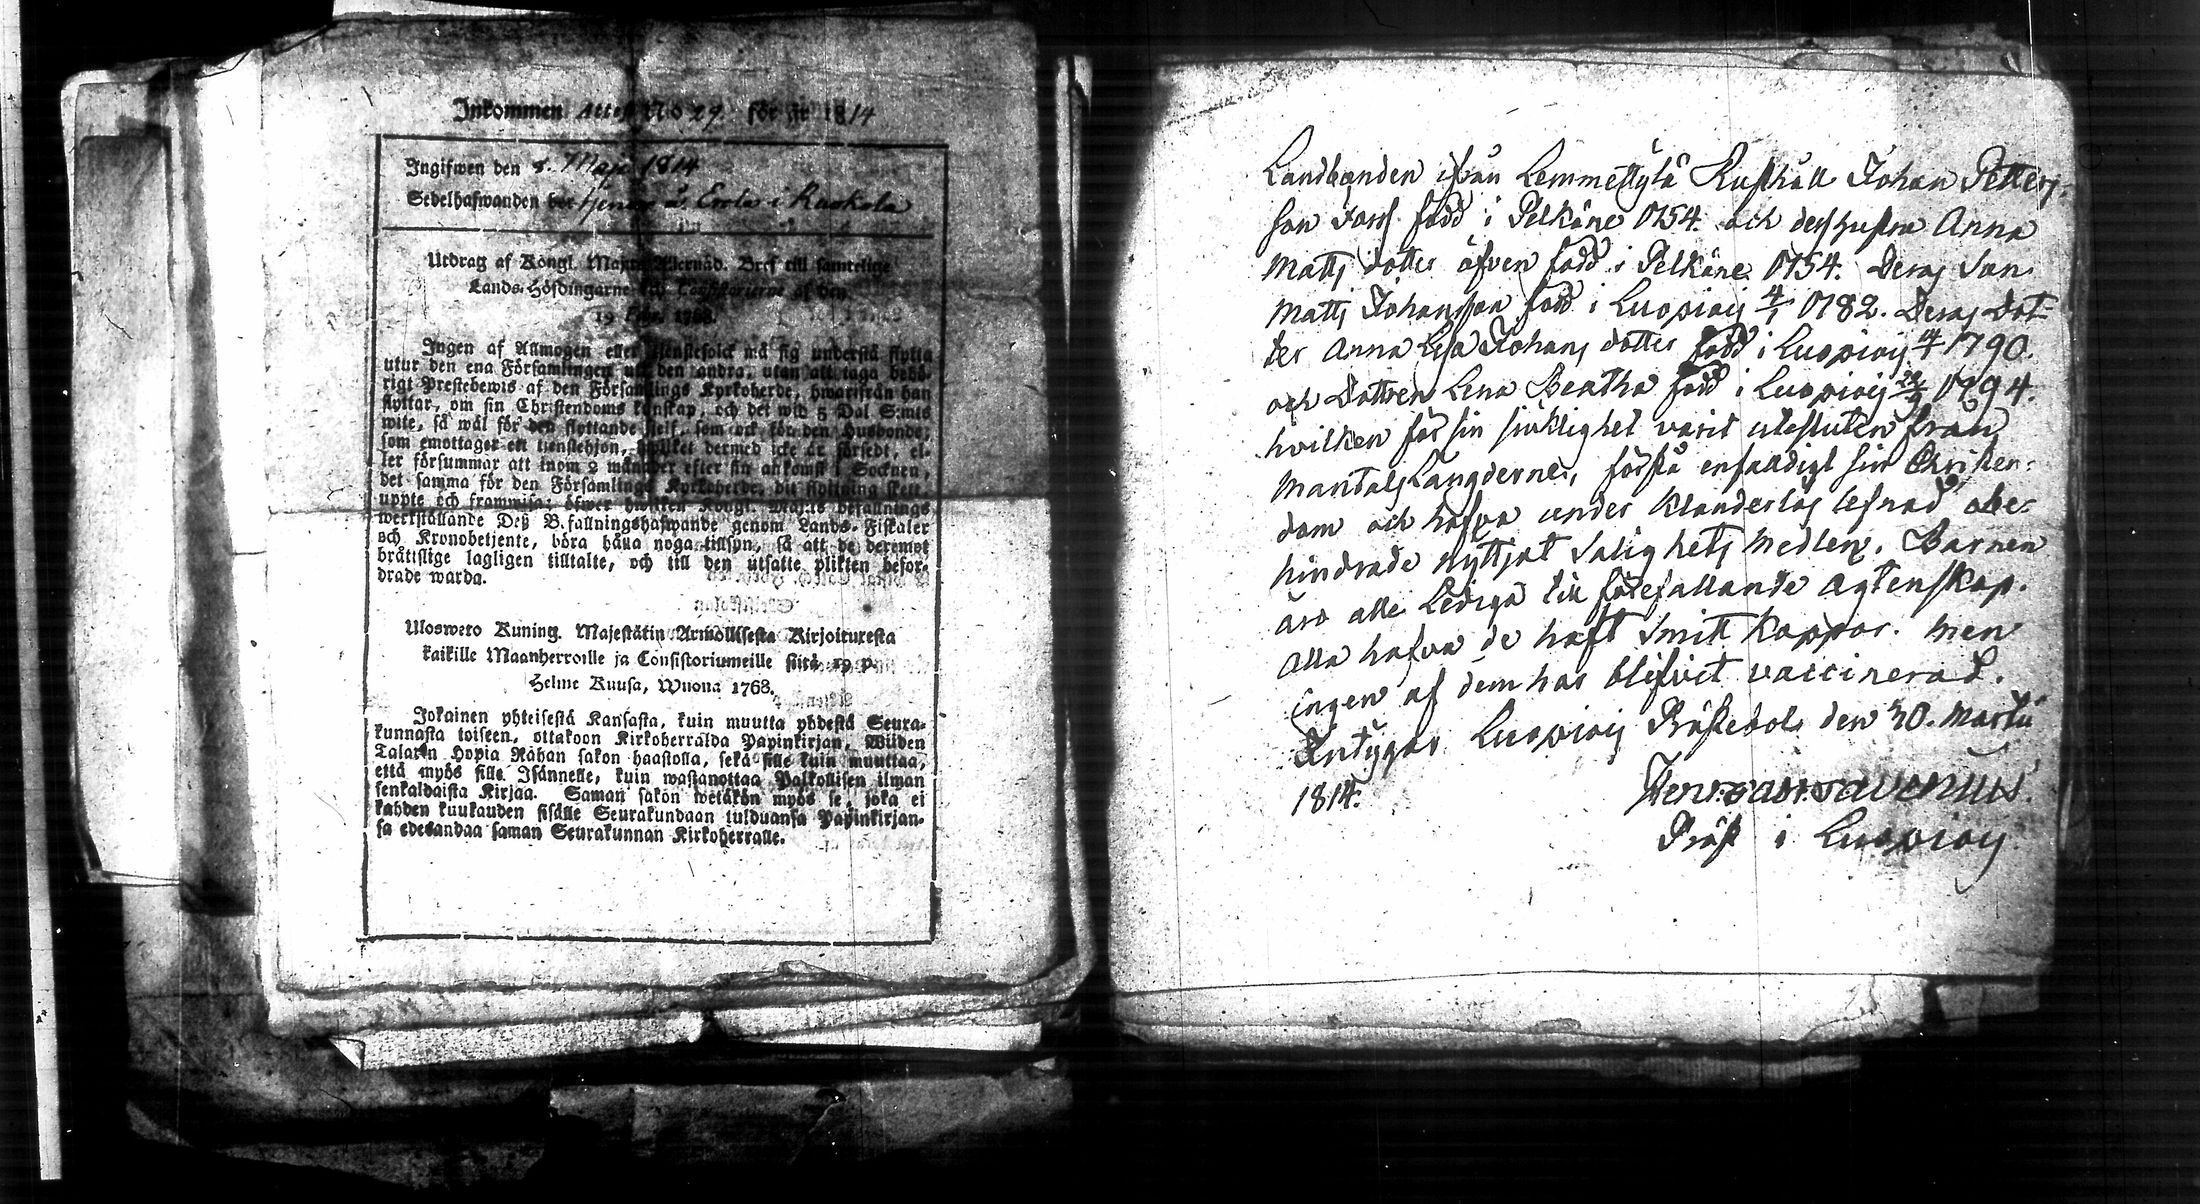 Inkommen Attest No 29 för år 1814
Ingifwen den 8. Maji 1814
Sedelhafwanden tjenar å Erola i Ruokola
Utdrag af Kongl. Maj:ts Allernåd. Bref till samtelige
Lands-Höfdingarne och Consistorierne af den
19 Febr. 1768.
Ingen af Allmogen eller Tienstefolck må sig understå flytta
utur den ena Församlingen uti den andra, utan att taga behö-
rigt Prestebewis af den Församlings Kyrkoherde, hwarifrån han
flyttar, om sin Christendoms kunskap, och det wid 5 Dal. S:mts
wite, så wäl för den flyttande sielf, som ock för den Husbonde,
som emottager ett tienstehjon, hwilket dermed icke är försedt, el-
ler försummar att inom 2 månader efter sin ankomst i Socknen,
det samma för den Församlings Kyrkoherde, dit flyttning skett
uppte och framwisa; öfwer hwilken Kongl. Maj:ts befallnings
werkställande Deß B.fallningshafwande genom Lands-Fiskaler
och Kronobetjente, böra hålla noga tillsyn, så att de deremot
bråtislige lagligen tilltalte, och till den utsatte plikten befor-
drade warda.
Uloswero Kuning. Majestätin Armollisesta Kirjoituxesta
kaikille Maanherroille ja Consistoriumeille siitä 19 p.
Helme Kuusa, Wuona 1768.
Jokainen yhteisestä Kansasta, kuin muutta yhdestä Seura-
kunnasta toiseen, ottakoon Kirkoherralda Papinkirjan, Wiiden
Talarin Hopia Rahan sakon haastolla, sekä sille kuin muuttaa,
että myös sille Isännelle, kuin wastanottaa Palkollisen ilman
senkaldaista Kirjaa. Saman sakon wetäkön myös se, joka ei
kahden kuukauden sisälle Seurakundaan tulduansa Papinkirjan-
sa edesandaa saman Seurakunnan Kirkoherralle.
Landbonden ifrån Lemmettylä Rusthåll Johan Petters-
son född i Pelkäne 1754. och dess hustru Anna
Matts dotter äfven född i Pelkäne 1754. Deras Son
Matts Johansson född i Luopiois 4/1 1782. Deras Dot-
ter Anna Lisa Johans dotter född i Luopiois 1790.
och Dottren Lena Beatha född i Luopiois 1794.
hvilken för sin siuklighet varit utesluten från
Mantals Längderne, förstå enfalldigt sin Christen-
dom och hafva under klanderlös lefnad obe-
hindrade nyttjat Salighets medlen. Barnen
äro alle Lediga till förefallande Agtenskap.
Alla hafva de haft Smitt Koppor. men
ingen af dem har blifvit vaccinerad.
Intygar Luopiois Prästebol den 30. Martii
1814.
Präst i Luopiois